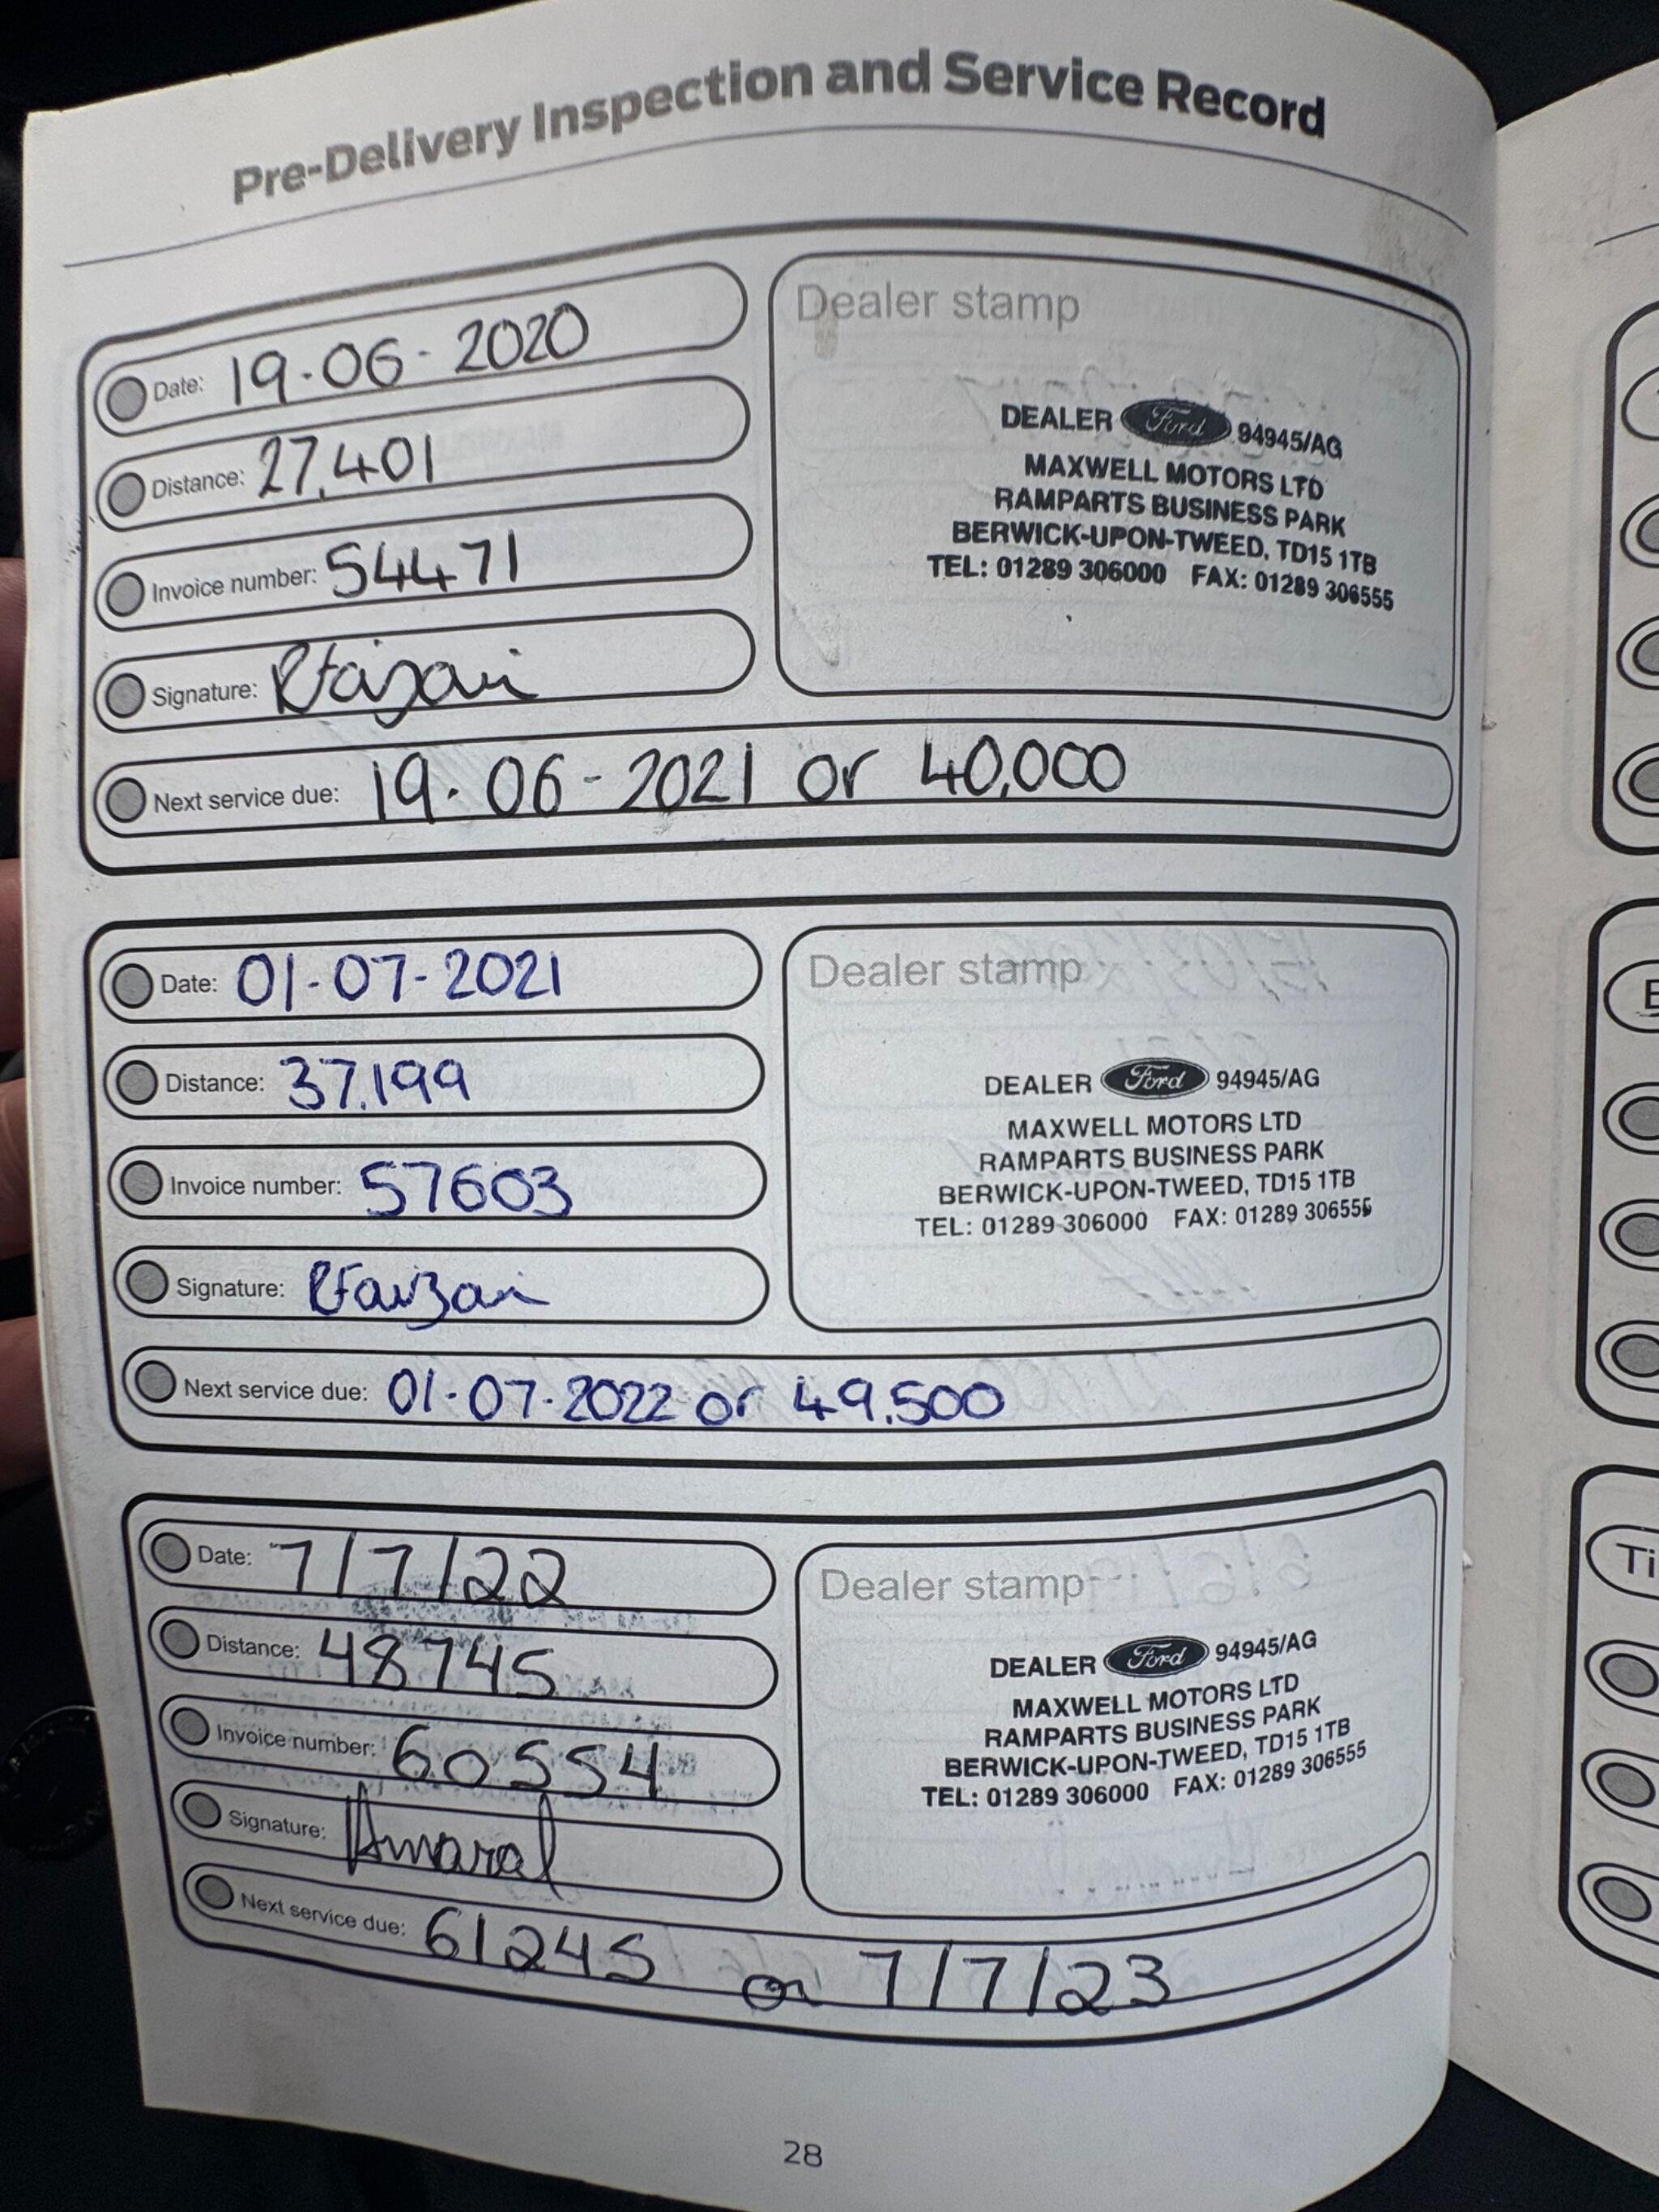 Pre-Delivery Inspection and Service Record
Date: 19-06-2020
Distance: 27,401
Invoice number: 54471
Signature:
Next service due: 19.06-2021 or 40,000
Dealer stamp
DEALER Ford 94945/AG
MAXWELL MOTORS LTD
RAMPARTS BUSINESS PARK
BERWICK-UPON-TWEED, TD15 1TB
TEL: 01289 306000 FAX: 01289 306555
Date: 01-07-2021
Distance: 37.199
Invoice number: 57603
Signature:
Next service due: 01-07-2022 or 49.500
Dealer stamp
DEALER Ford 94945/AG
MAXWELL MOTORS LTD
RAMPARTS BUSINESS PARK
BERWICK-UPON-TWEED, TD15 1TB
TEL: 01289 306000 FAX: 01289 306555
Date: 7/7/22
Distance: 48745
Invoice number: 60554
Signature: Amaral
Next service due: 61245 or 7/7/23
Dealer stamp
DEALER Ford 94945/AG
MAXWELL MOTORS LTD
RAMPARTS BUSINESS PARK
BERWICK-UPON-TWEED, TD15 1TB
TEL: 01289 306000 FAX: 01289 306555
28
Ti